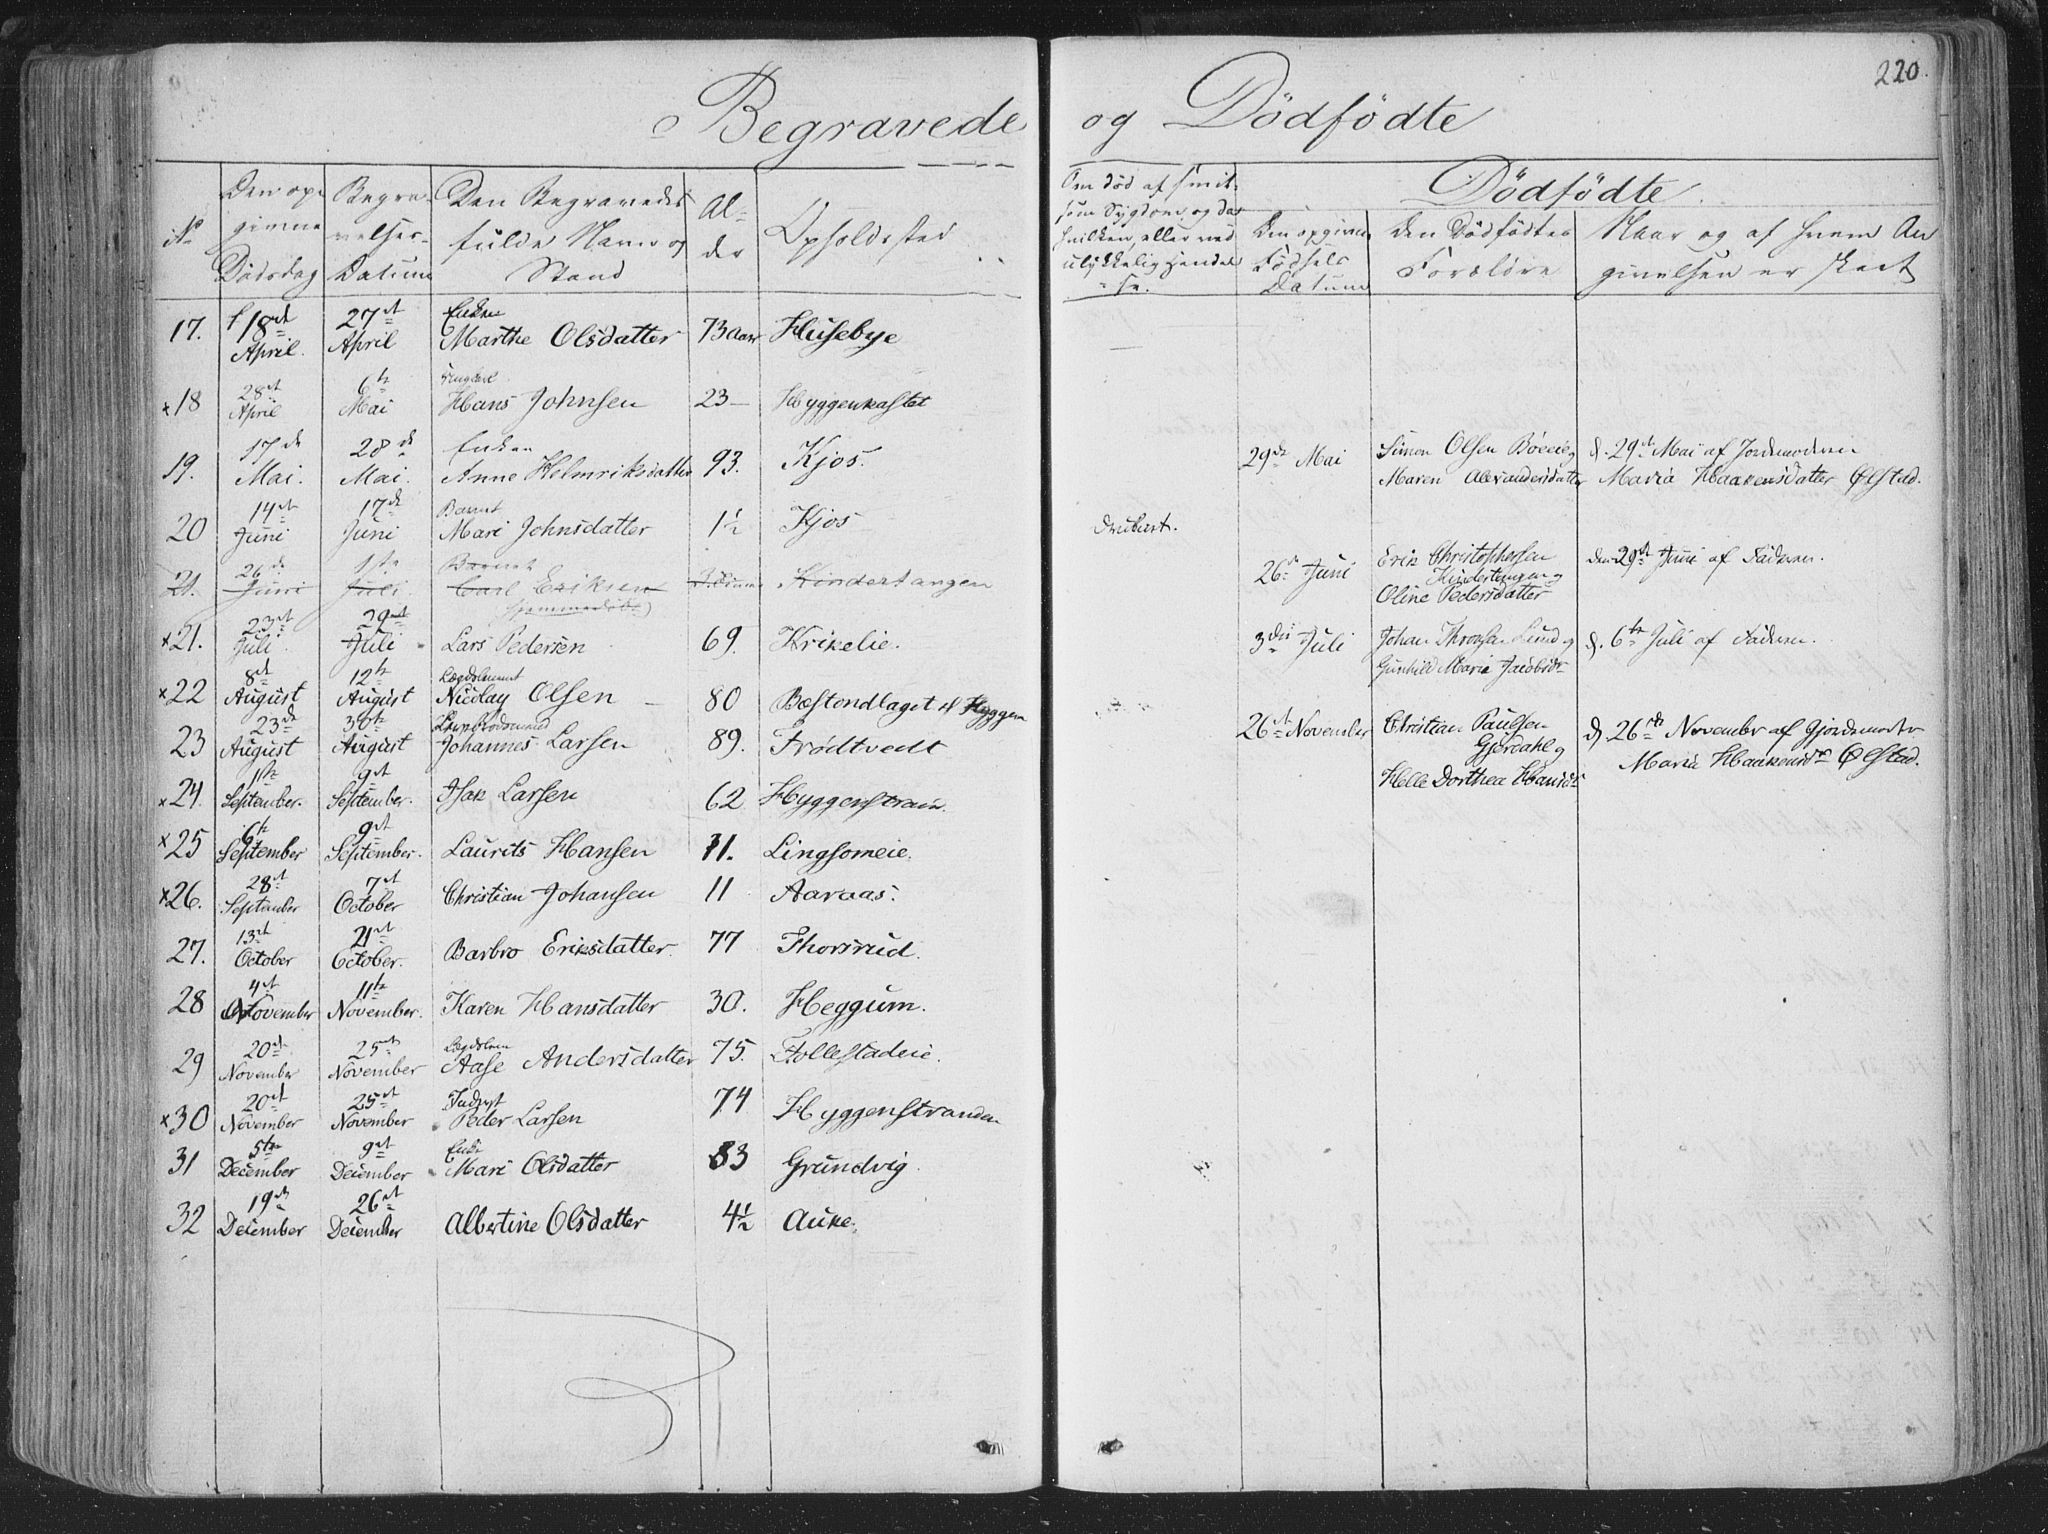 220.
Begravede og Dödfödte
No
Den opgivne Dödsdag
Begravelses-Datum
Den Begravedes fulde Navn og Stand
Alder
Opholdssted
Om död af smitsom Sygdom, og da hvilken, eller ved ulykkelig Hændelse.
Dödfödte.
Den opgivne Födsels Datum
Den Dödfödtes Forældre
Naar og af hvem Angivelsen er skeet
17. † 18de April. 27de April Enken Marthe Olsdatter 73 Aar Husebye
x18 28de April 6te Mai Ungkarl Hans Johnsen 23 — Hyggenkastet
19. 17de Mai. 28de Mai. Enken Anne Helmriksdatter 93. Kjos.
29de Mai Simon Olsen Böeeie og d. 29de Mai af Jordemoderen
Maren Alexandersdatter Maria Haakensdatter Ølstad.
20 14de Juni 17de Juni Barnet Mari Johnsdatter 1½ Kjos
21. 26de Juni 1ste Juli Barnet Carl Eriksen Kindertangen
26de Juni Erik Christophersen Kindertangen og den 29de Juni af Faderen.
Oline Pedersdatter
x21. 23de Juli. 29de Juli Lars Pedersen 69. Krikelie.
3die Juli Johan Lund og d. 6te Juli af Faderen.
Gunhild Marie Jacobsdr
x22 8de August 12te August Lægdslemmet Nicolay Olsen 80 Bæstondlaget Hyggen
23 23de August 30te August Johannes Larsen 89. Frödtvedt
26de November Christian Paulsen Gjerdahl og d. 26de Novembr af Gjordemoder
Helle Dorthea Hansdr Maria Haakensdr Ølstad.
x24. 1ste September. 9de September. Isak Larsen 62 Hyggenstran.
x25 6te September 9de September. Laurits Hansen 71. Lingsomeie.
x26. 28de September 7de October Christian Johansen 11 Aaraas.
27. 13de October 21de October. Barbro Eriksdatter 77 Thorsrud.
28 4de November 11te November. Karen Hansdatter 30. Heggum.
29 20de November 25de November Lægdslem Aase Andersdatter 75. Follestadeie.
x30 20de November 25de November Inderst Peder Larsen 74 Hyggenstranden
31 5te December 9de December Enke Mari Olsdatter 83 Grundvig.
32 19de December 26de December Albertine Olsdatter 4½ Auke.